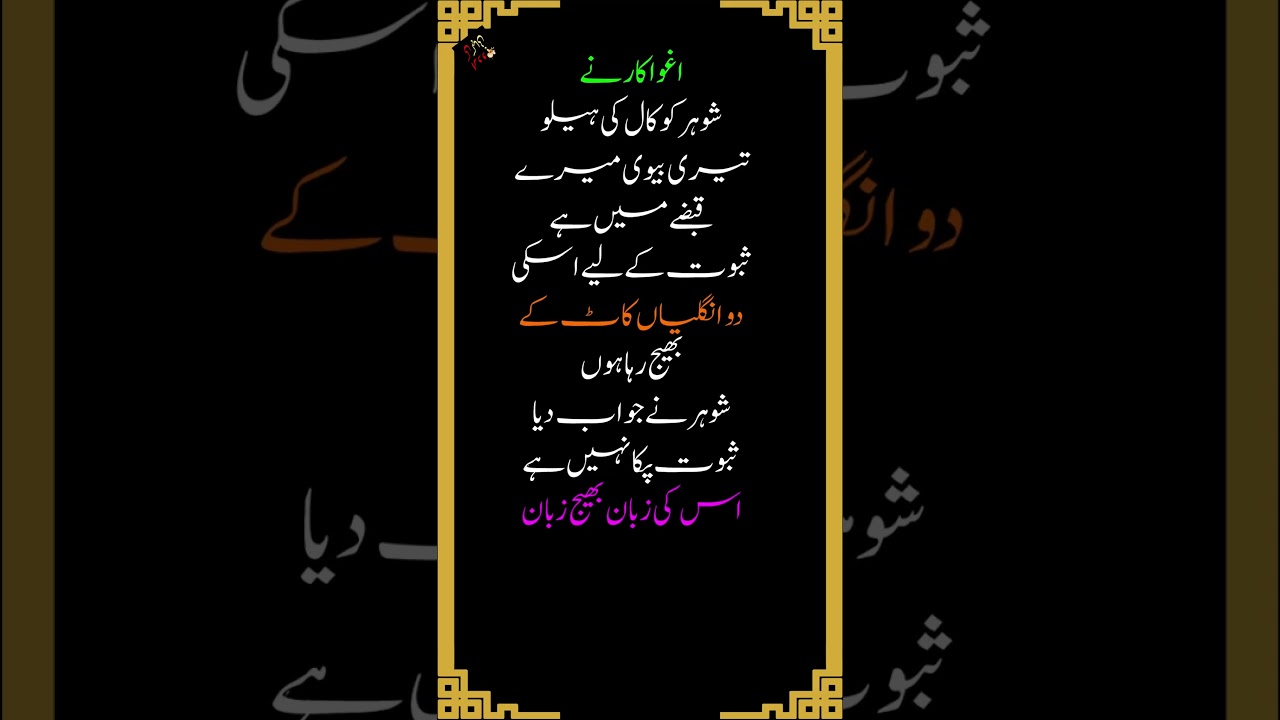 اغوا کار نے
شوہر کو کال کی ہیلو
تیری بیوی میرے
قبضے میں ہے
ثبوت کے لیے اسکی
دو انگلیاں کاٹ کے
بھیج رہا ہوں
شوہر نے جواب دیا
ثبوت پکا نہیں ہے
اس کی زبان بھیج زبان